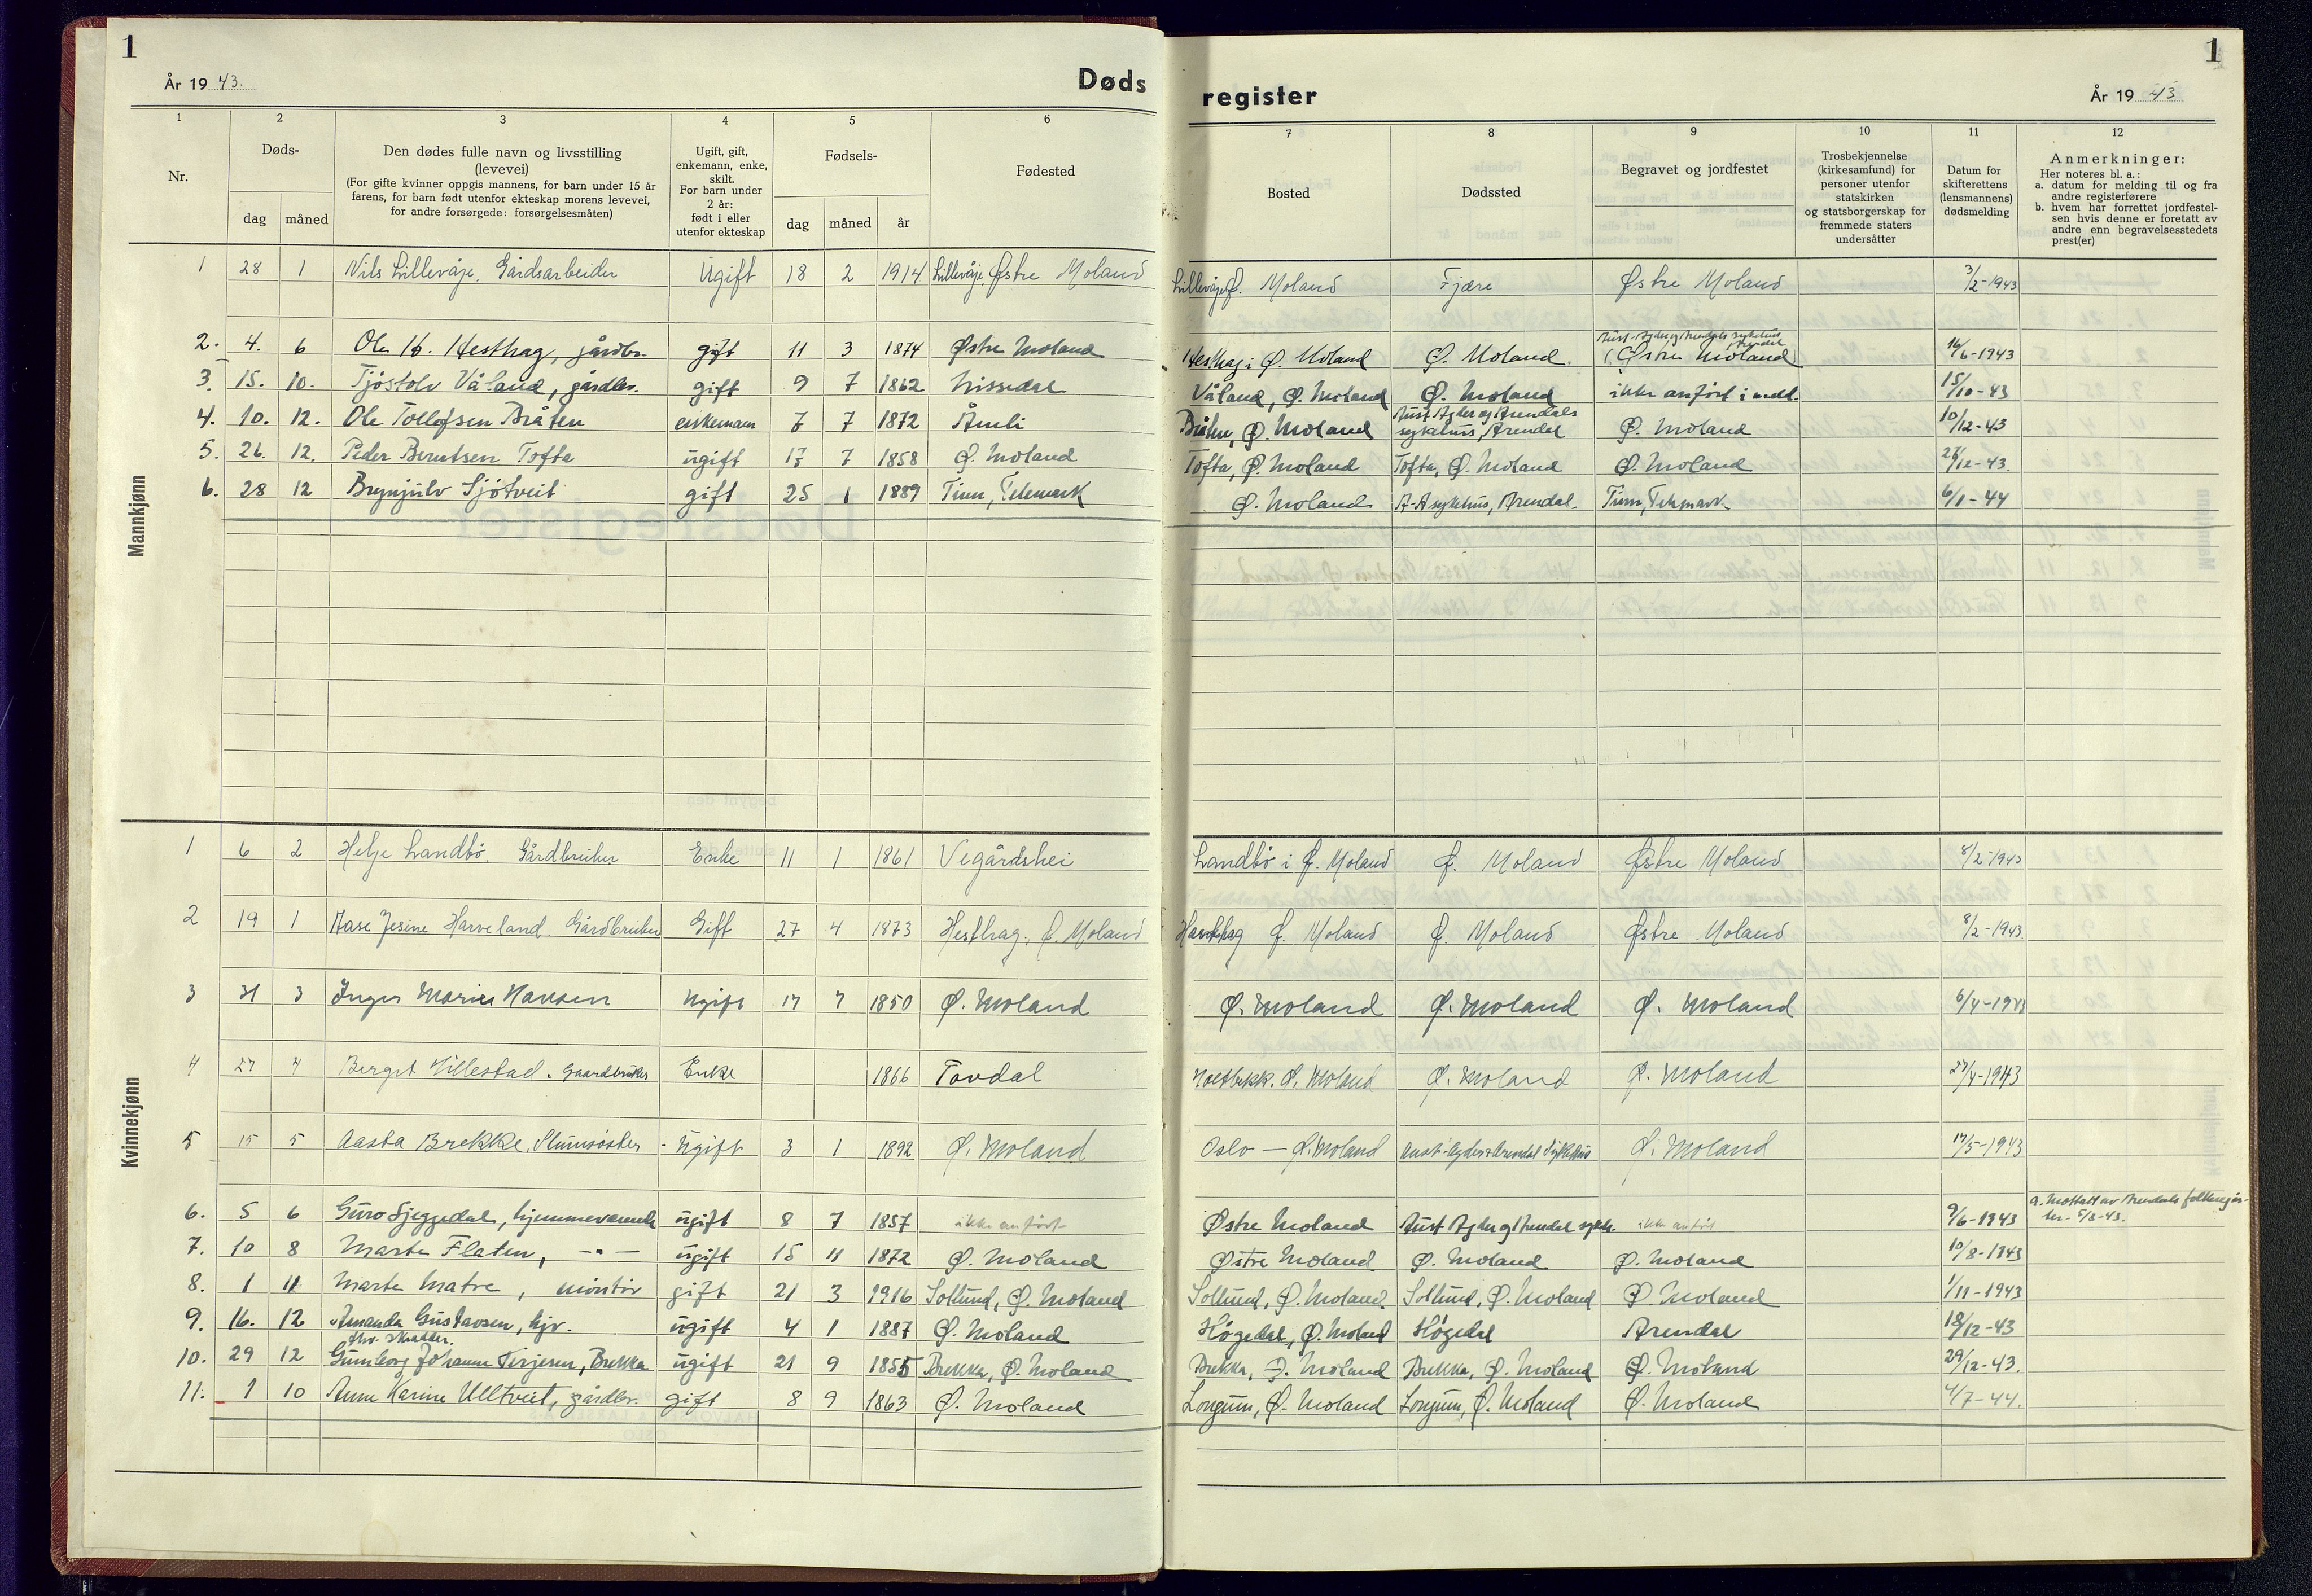 1
År 1943.
Døds
1 2 3 4 5 6
Nr.
Døds-
dag måned
Den dødes fulle navn og livsstilling
(levevei)
(For gifte kvinner oppgis mannens, for barn under 15 år
farens, for barn født utenfor ekteskap morens levevei,
for andre forsørgede: forsørgelsesmåten)
Ugift, gift,
enkemann, enke,
skilt.
For barn under
2 år:
født i eller
utenfor ekteskap
Fødsels-
dag måned år
Fødested
Mannkjønn
1 28 1 Nils Lillevåje. Gårdsarbeider Ugift 18 2 1914 Lillevåje, Østre Moland
2. 4. 6 Ole H. Hesthag, gårdbr. gift 11 3 1874 Østre Moland
3. 15. 10. Tjøstolv Våland, gårdbr. gift 9 7 1862 Nissedal
4. 10. 12. Ole Tollefsen Bråten enkemann 7 7 1872 Åmli
5. 26. 12. Peder Berntsen Tofte ugift 17 7 1858 Ø. Moland
6. 28 12 Brynjulv Sjøtveit gift 25 1 1889 Tinn, Telemark
Kvinnekjønn
1 6 2 Helje Landbø. Gårdbruker Enke 11 1 1861 Vegårdshei
2 19 1 Aase Jesine Harveland Gårdbruker Gift 27 4 1873 Hesthag, Ø. Moland
3 31 3 Inger Marie Hansen Ugift 17 7 1850 Ø. Moland
4 27 4 Bergit Hillestad. Gaardbruker Enke 1866 Tovdal
5 15 5 Aasta Brekke, - Ugift 3 1 1892 Ø. Moland
6. 5 6 Guro Sjeggedal, hjemmeværende ugift 8 7 1857 ikke anført
7. 10 8 Marte Flaten, -"- ugift 15 11 1872 Ø. Moland
8. 1 11 Marte Matre, gift 21 3 1916 Sollund, Ø. Moland
9. 16. 12 Amanda Gustavsen, hjv. ugift 4 1 1887 Ø. Moland
10. 29 12 Gunborg Johanne Terjesen, Brekka ugift 21 9 1855 Brekka, Ø. Moland
11. 1 10 Anne Karine Ulltveit, gårdbr. gift 8 9 1863 Ø. Moland
1
register
År 1943
7 8 9 10 11 12
Bosted
Dødssted
Begravet og jordfestet
Trosbekjennelse
(kirkesamfund) for
personer utenfor
statskirken
og statsborgerskap for
fremmede staters
undersåtter
Datum for
skifterettens
(lensmannens)
dødsmelding
Anmerkninger:
Her noteres bl. a.:
a. datum for melding til og fra
andre registerførere
b. hvem har forrettet jordfestel-
sen hvis denne er foretatt av
andre enn begravelsesstedets
prest(er)
Lillevåje Ø. Moland Fjære Østre Moland 3/2-1943
Aust-Agder og Arendals sykehus, Arendal
Hesthag i Ø. Moland Ø. Moland. (Østre Moland) 16/6-1943
Våland, Ø. Moland Ø. Moland ikke anført i meld. 15/10-43
Bråten, Ø. Moland Aust-Agder og Arendals sykehus, Arendal Ø. Moland 10/12-43
Tofte, Ø. Moland Tofte, Ø. Moland Ø. Moland 28/12-43.
Ø. Moland A-A sykehus, Arendal. Tinn, Telemark. 6/1-44
Landbø i Ø. Moland Ø. Moland Østre Moland 8/2-1943
Ø. Moland Ø. Moland Østre Moland 8/2-1943.
Ø. Moland Ø. Moland Ø. Moland 6/4-1943
Ø. Moland Ø. Moland Ø. Moland 27/4-1943
Oslo - Ø. Moland Aust-Agder & Arendal Sykehus Ø. Moland 17/5-1943
Østre Moland Aust-Agder og Arendal sykeh. ikke anført 9/6-1943 a. Mottatt av Arendals folkeregis-
ter 5/8-43.
Østre Moland. Ø. Moland Ø. Moland 10/8-1943
Sollund, Ø. Moland. Sollund, Ø. Moland Ø. Moland 1/11-1943
Høgedal, Ø. Moland Høgedal Arendal 18/12-43
Brekka, Ø. Moland Brekka, Ø. Moland Ø. Moland 29/12-43.
Longum, Ø. Moland Longum, Ø. Moland Ø. Moland 4/7-44.